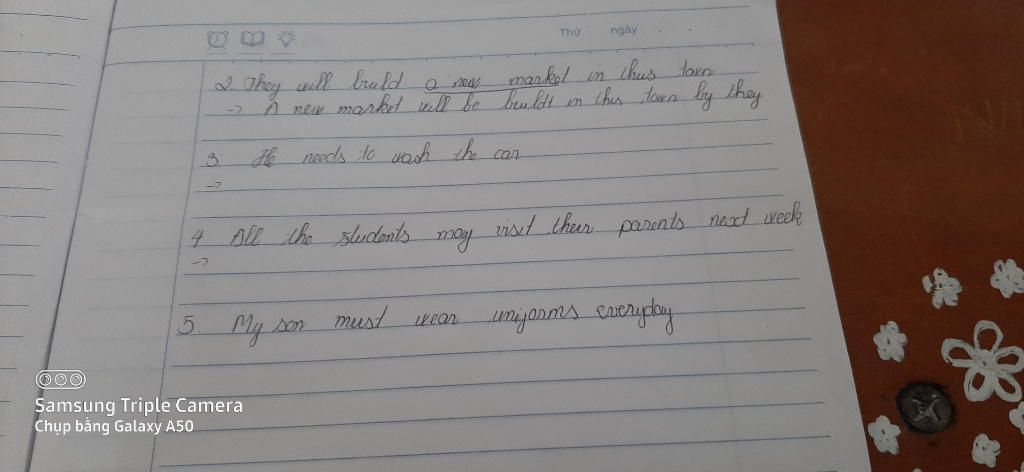 Thứ ngày . .
2. They will build a new market in this town
-> A new market will be buildt in this town by they
3 He needs to wash the car
->
4 All the students may visit their parents next week
->
5. My son must wear uniforms everyday
Samsung Triple Camera
Chụp bằng Galaxy A50